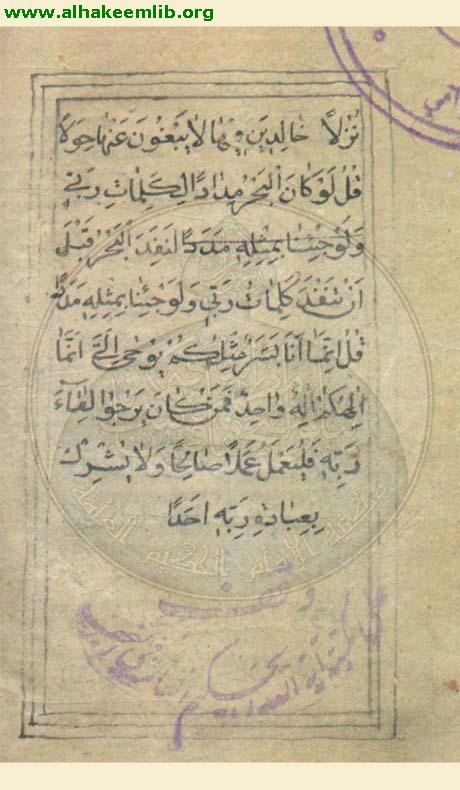 www.alhakeemlib.org
نُزُلًا خَالِدِينَ فِيهَا لَا يَبْغُونَ عَنْهَا حِوَلًا
قُلْ لَوْ كَانَ الْبَحْرُ مِدَادًا لِكَلِمَاتِ رَبِّي
وَلَوْ جِئْنَا بِمِثْلِهِ مَدَدًا لَنَفِدَ الْبَحْرُ قَبْلَ
اَنْ تَنْفَدَ كَلِمَاتُ رَبِّي وَلَوْ جِئْنَا بِمِثْلِهِ مَدَدًا
قُلْ اِنَّمَا اَنَا بَشَرٌ مِثْلُكُمْ يُوحَى اِلَيَّ اَنَّمَا
اِلَهُكُمْ اِلَهٌ وَاحِدٌ فَمَنْ كَانَ يَرْجُوا لِقَاءَ
رَبِّهِ فَلْيَعْمَلْ عَمَلًا صَالِحًا وَلَا يُشْرِكْ
بِعِبَادَةِ رَبِّهِ اَحَدًا
وقف
مكتبة الإمام الحكيم العامة